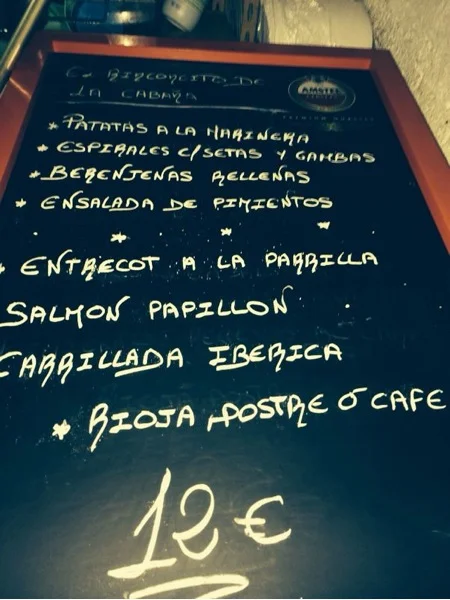 El RINCONCITO DE
LA CABAÑA
AMSTEL
* PATATAS A LA MARINERA
* ESPIRALES C/SETAS Y GAMBAS
* BERENJENAS RELLENAS
* ENSALADA DE PIMIENTOS
* ENTRECOT A LA PARRILLA
SALMON PAPILLON
CARRILLADA IBERICA
* RIOJA, POSTRE Ó CAFE
12 €